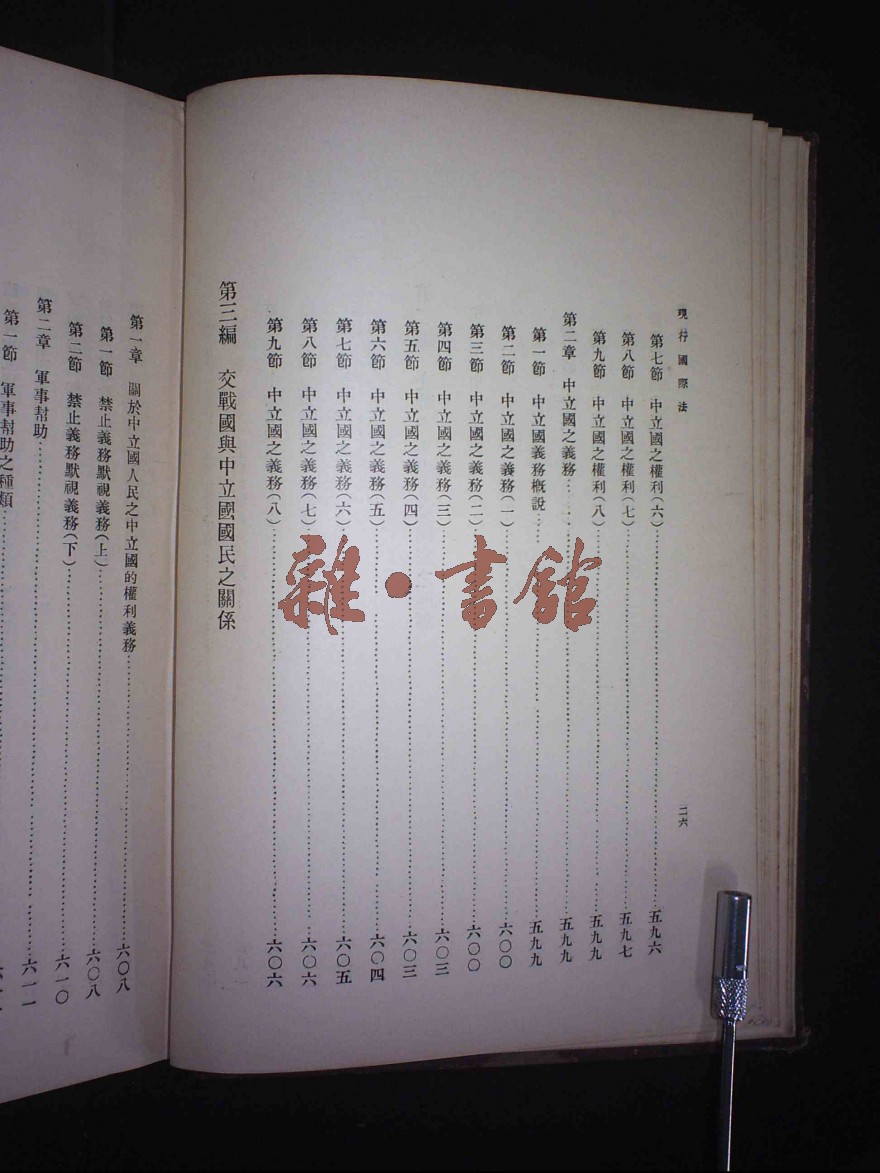 現行國際法
二六
第七節 中立國之權利(六)……五九六
第八節 中立國之權利(七)……五九七
第九節 中立國之權利(八)……五九九
第二章 中立國之義務……五九九
第一節 中立國義務概說……五九九
第二節 中立國之義務(一)……六〇〇
第三節 中立國之義務(二)……六〇〇
第四節 中立國之義務(三)……六〇三
第五節 中立國之義務(四)……六〇三
第六節 中立國之義務(五)……六〇四
第七節 中立國之義務(六)……六〇五
第八節 中立國之義務(七)……六〇六
第九節 中立國之義務(八)……六〇六
第三編 交戰國與中立國國民之關係
第一章 關於中立國人民之中立國的權利義務……六〇八
第一節 禁止義務默視義務(上)……六〇八
第二節 禁止義務默視義務(下)……六一〇
第二章 軍事幫助……六一一
第一節 軍事幫助之種類……
雜·書館